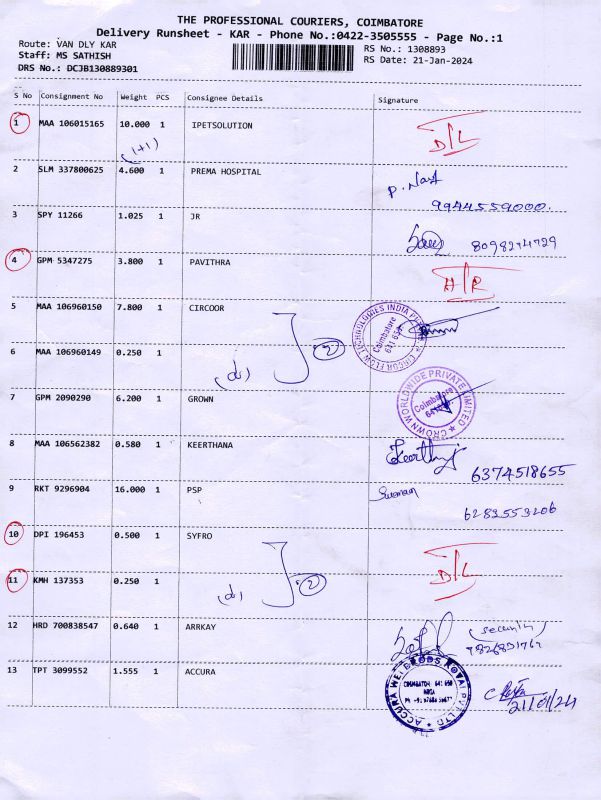 THE PROFESSIONAL COURIERS, COIMBATORE
Delivery Runsheet - KAR - Phone No.:0422-3505555 - Page No.:1
Route: VAN DLY KAR
RS No.: 1308893
Staff: MS SATHISH
RS Date: 21-Jan-2024
DRS No.: DCJB130889301
S No Consignment No Weight PCS Consignee Details Signature
1 MAA 106015165 10.000 1 IPETSOLUTION D/L
(1+1)
2 SLM 337800625 4.600 1 PREMA HOSPITAL
9944559000.
3 SPY 11266 1.025 1 JR
8098274729
4 GPM 5347275 3.800 1 PAVITHRA
5 MAA 106960150 7.800 1 CIRCOOR
CIRCOR FLOW TECHNOLOGIES INDIA
Coimbatore
6 MAA 106960149 0.250 1 2
7 GPM 2090290 6.200 1 GROWN
CROWN WORLDWIDE PRIVATE LIMITED
Coimbatore
8 MAA 106562382 0.580 1 KEERTHANA Keerthana
6374518655
9 RKT 9296904 16.000 1 PSP
6283553206
10 DPI 196453 0.500 1 SYFRO D/L
11 KMH 137353 0.250 1 2
12 HRD 700838547 0.640 1 ARRKAY (security)
13 TPT 3099552 1.555 1 ACCURA
21/01/24